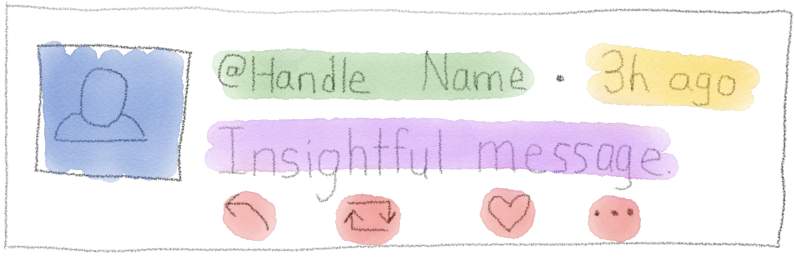 @Handle Name • 3h ago
Insightful message.